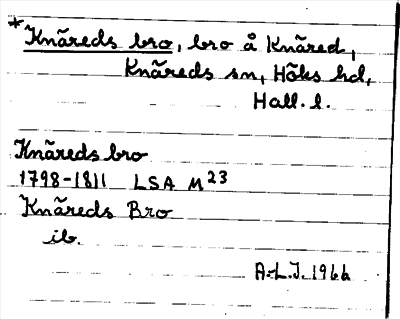 *Knäreds bro, bro å Knäred,
Knäreds sn, Höks hd,
Hall. l.
Knäreds bro
1798-1811 LSA M23
Knäreds Bro
ib.
A.L.J. 1966